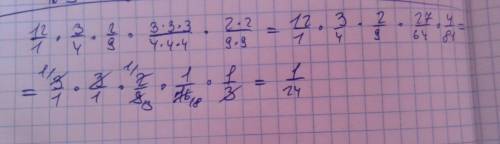 12/1 · 3/4 · 2/9 · (3·3·3)/(4·4·4) · (2·2)/(9·9) = 12/1 · 3/4 · 2/9 · 27/64 · 4/81 =
= 3/1 · 3/1 · 2/9 · 1/16 · 1/3 = 1/24